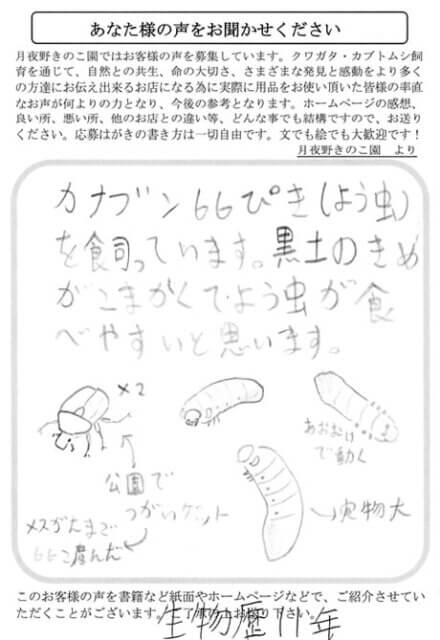 あなた様の声をお聞かせください
月夜野きのこ園ではお客様の声を募集しています。クワガタ・カブトムシ飼
育を通じて、自然との共生、命の大切さ、さまざまな発見と感動をより多く
の方達にお伝え出来るお店になる為に実際に用品をお使い頂いた皆様の率直
なお声が何よりの力となり、今後の参考となります。ホームページの感想、
良い所、悪い所、他のお店との違い等、どんな事でも結構ですので、お送り
ください。応募はがきの書き方は一切自由です。文でも絵でも大歓迎です！
月夜野きのこ園 より
カナブン66ぴき(よう虫)
を飼っています。黒土のきめ
がこまかくて、よう虫が食
べやすいと思います。
×2
公園で
つがいゲット
メスがたまご
66こ産んだ
あおむけ
で動く
実物大
このお客様の声を書籍など紙面やホームページなどで、ご紹介させてい
ただくことがございます。ご了承の上お送り下さい。
生物歴11年